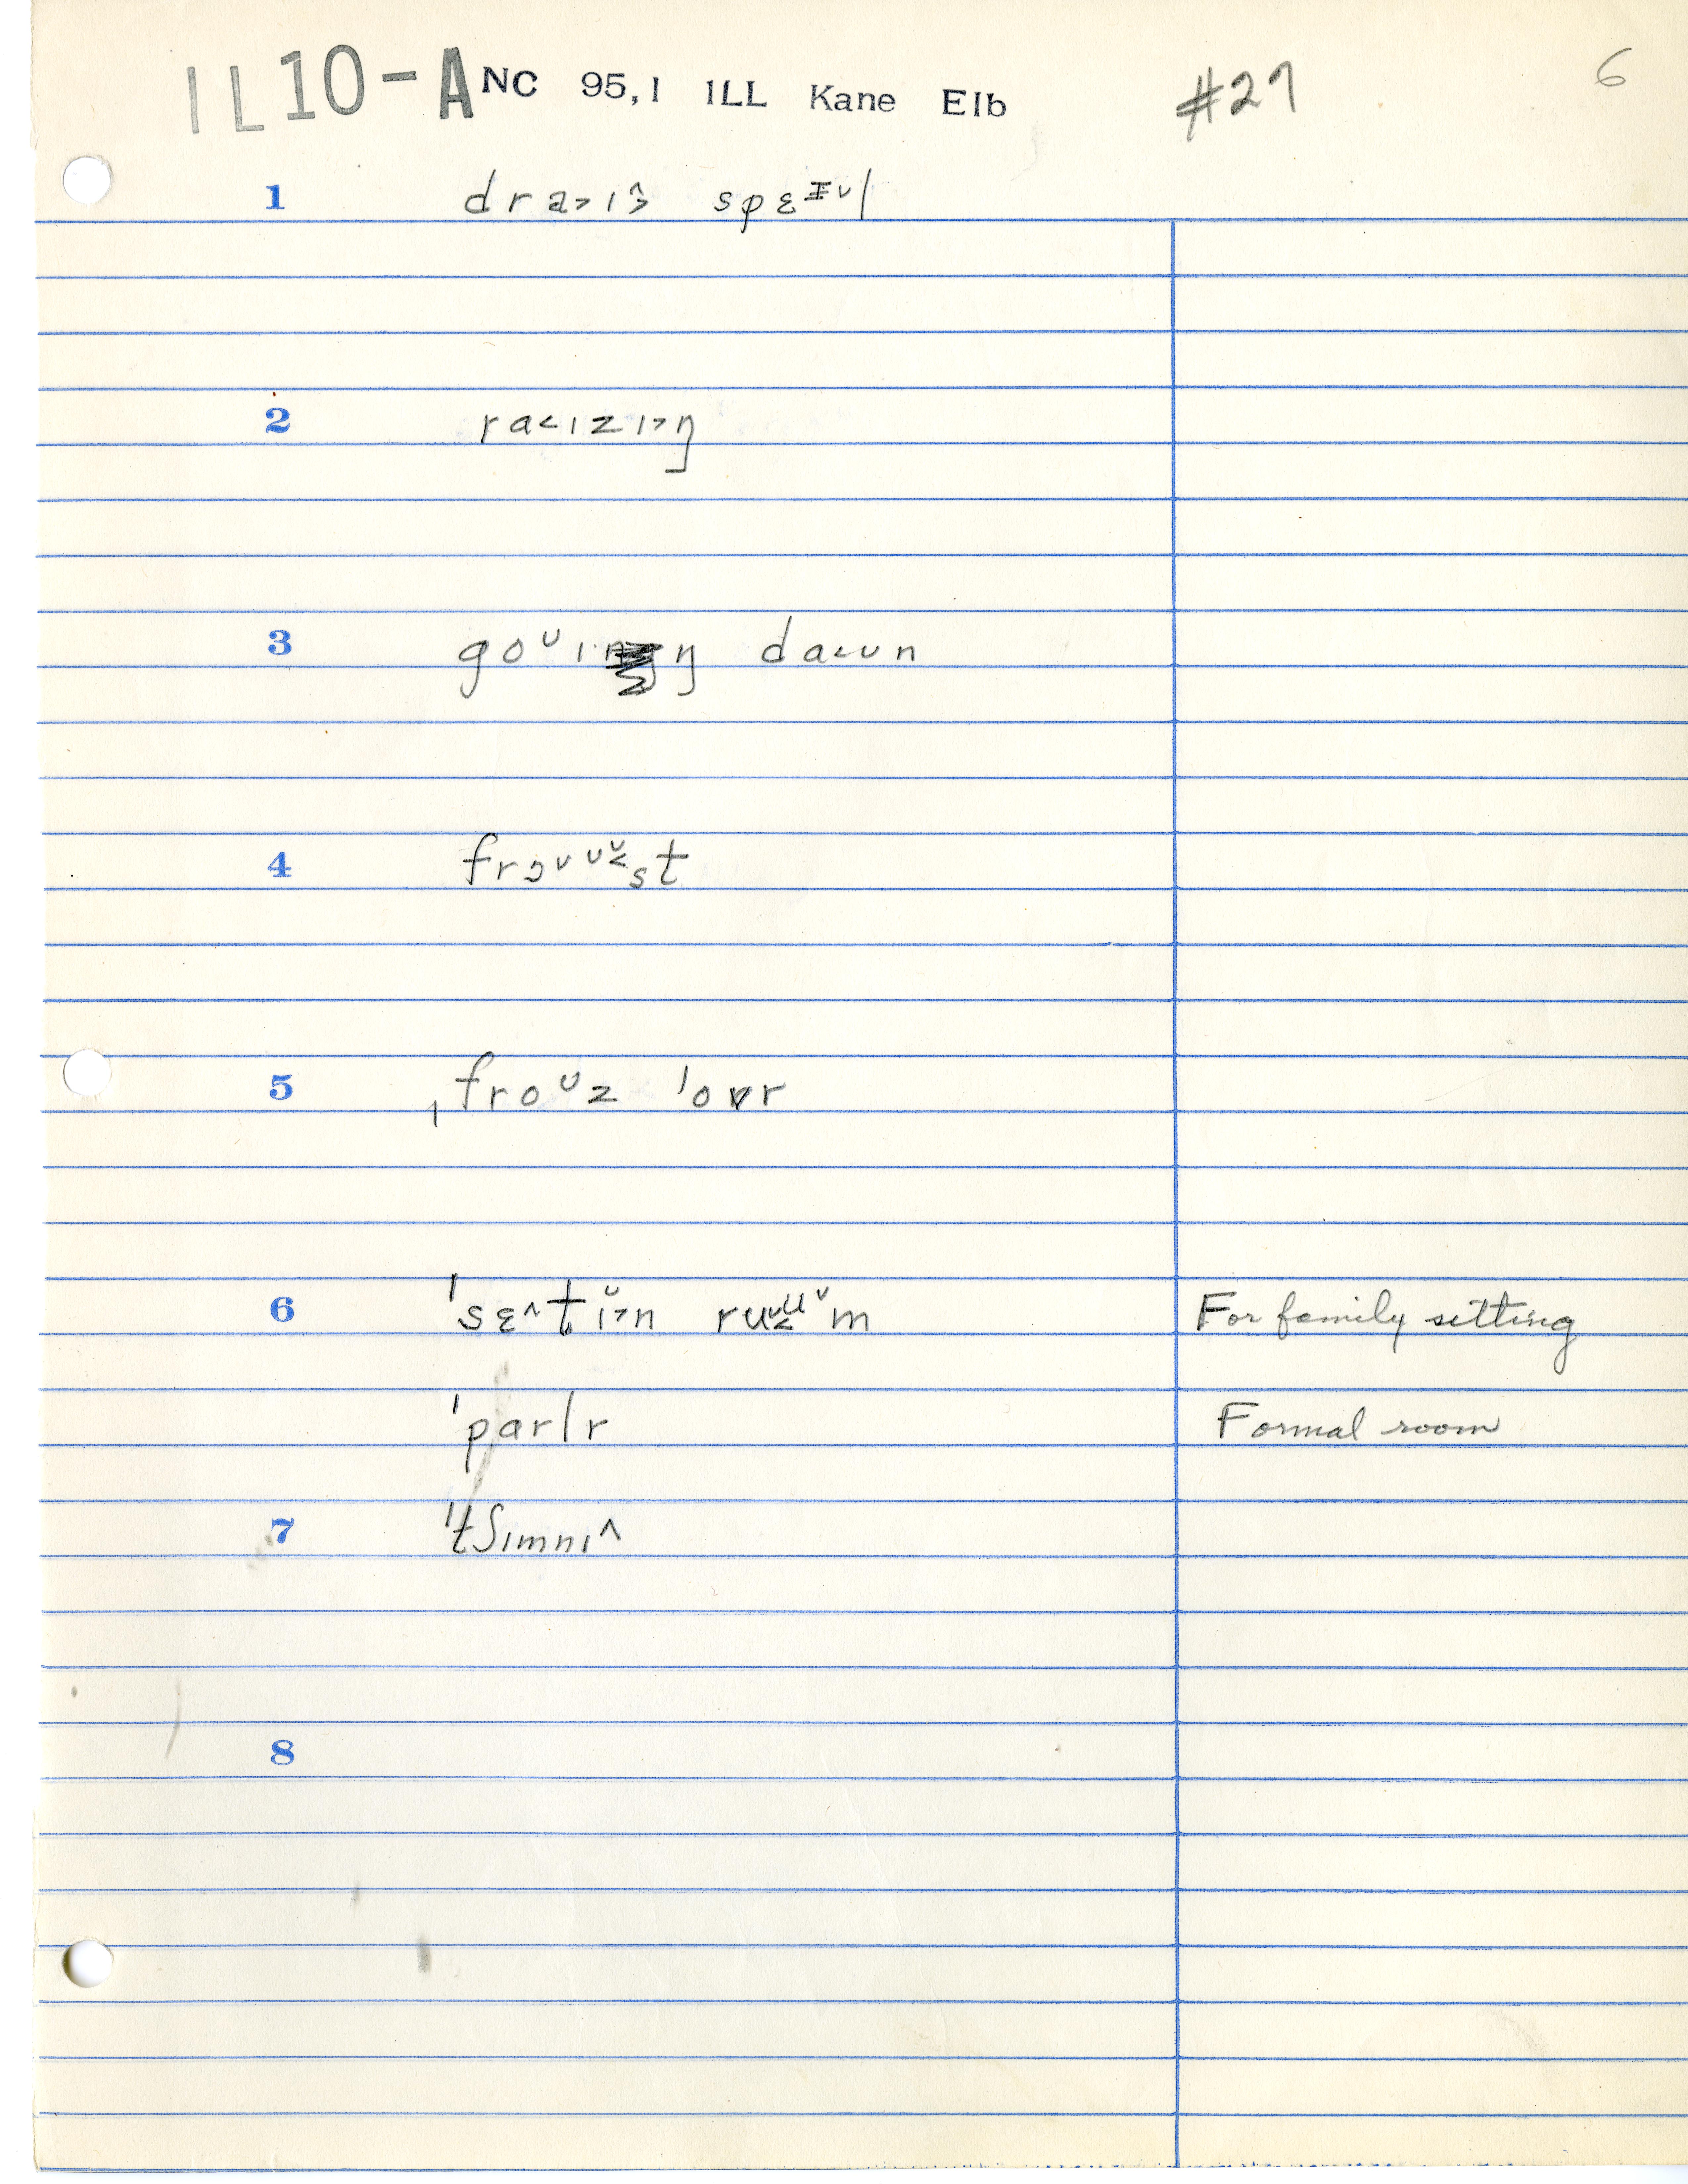 IL10-A NC 95,1 ILL Kane Elb #27 6
1 dra˃ɪ˄ spɛɪ˅l
2 ra˂ɪzɪ˃ŋ
3 goᶷɪŋ da˂ʊn
4 frɔ˅ᶷst
5 ˌfroᶷz ˈovr
6 ˈsɛ˄tɪ˃n ruᵘm For family sitting
ˈparlr Formal room
7 ˈtʃɪmnɪ˄
8